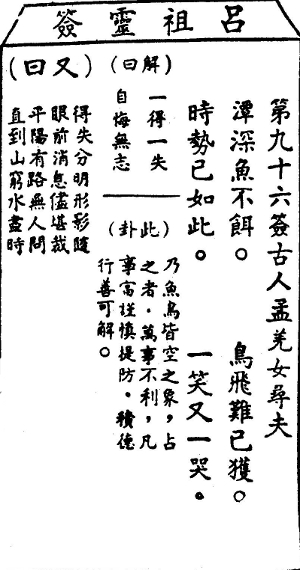 呂祖靈簽
第九十六簽古人孟羌女尋夫
潭深魚不餌。 鳥飛難已獲。
時勢已如此。 一笑又一哭。
(解曰)
一得一失
自悔無志
(此卦)
乃魚鳥皆空之象,占
之者.萬事不利,凡
事富謹慎提防。積德
行善可解。
(又曰)
得失分明形影隨
眼前消息儘堪裁
平陽有路無人問
直到山窮水盡時